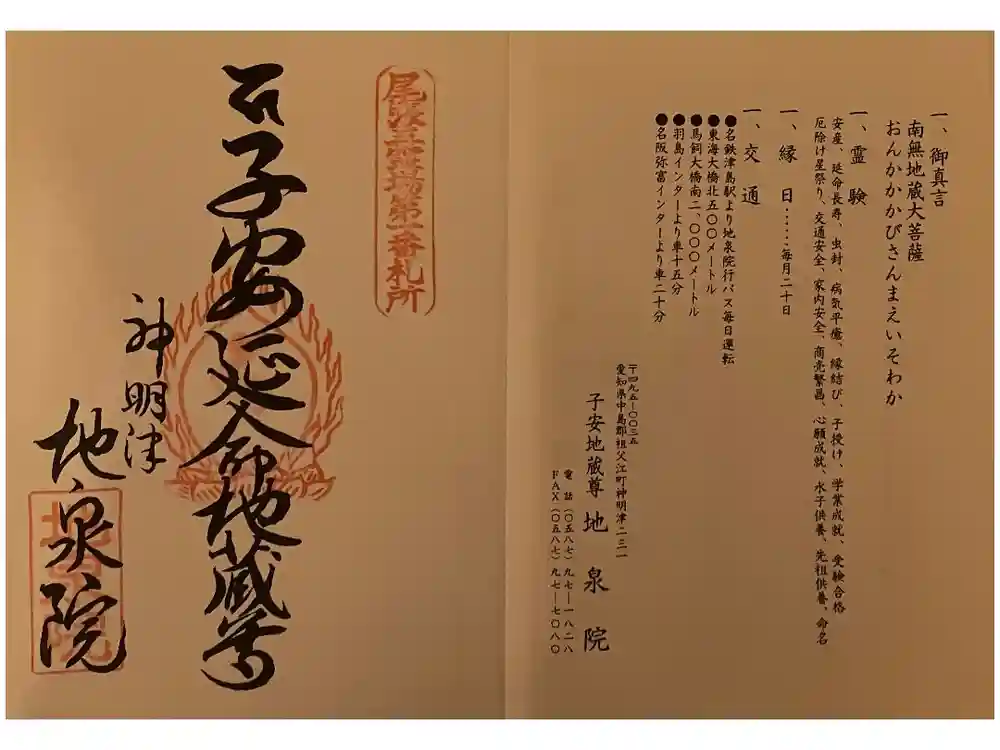 一、御真言
南無地蔵大菩薩
おんかかかびさんまえいそわか
一、霊験
安産、延命長寿、虫封、病気平癒、縁結び、子授け、学業成就、受験合格
厄除け星祭り、交通安全、家内安全、商売繁昌、心願成就、水子供養、先祖供養、命名
一、縁日……毎月二十日
一、交通
●名鉄津島駅より地泉院行バス毎日運転
●東海大橋北五〇〇メートル
●馬飼大橋南二、〇〇〇メートル
●羽島インターより車十五分
●名阪弥富インターより車二十分
〒四九五―〇〇三五
愛知県中島郡祖父江町神明津二三一
子安地蔵尊 地泉院
電話(〇五八七)九七―一八二八
FAX(〇五八七)九七―七〇八〇
尾張三霊場第一番札所
子安延命地蔵尊
神明津
地泉院